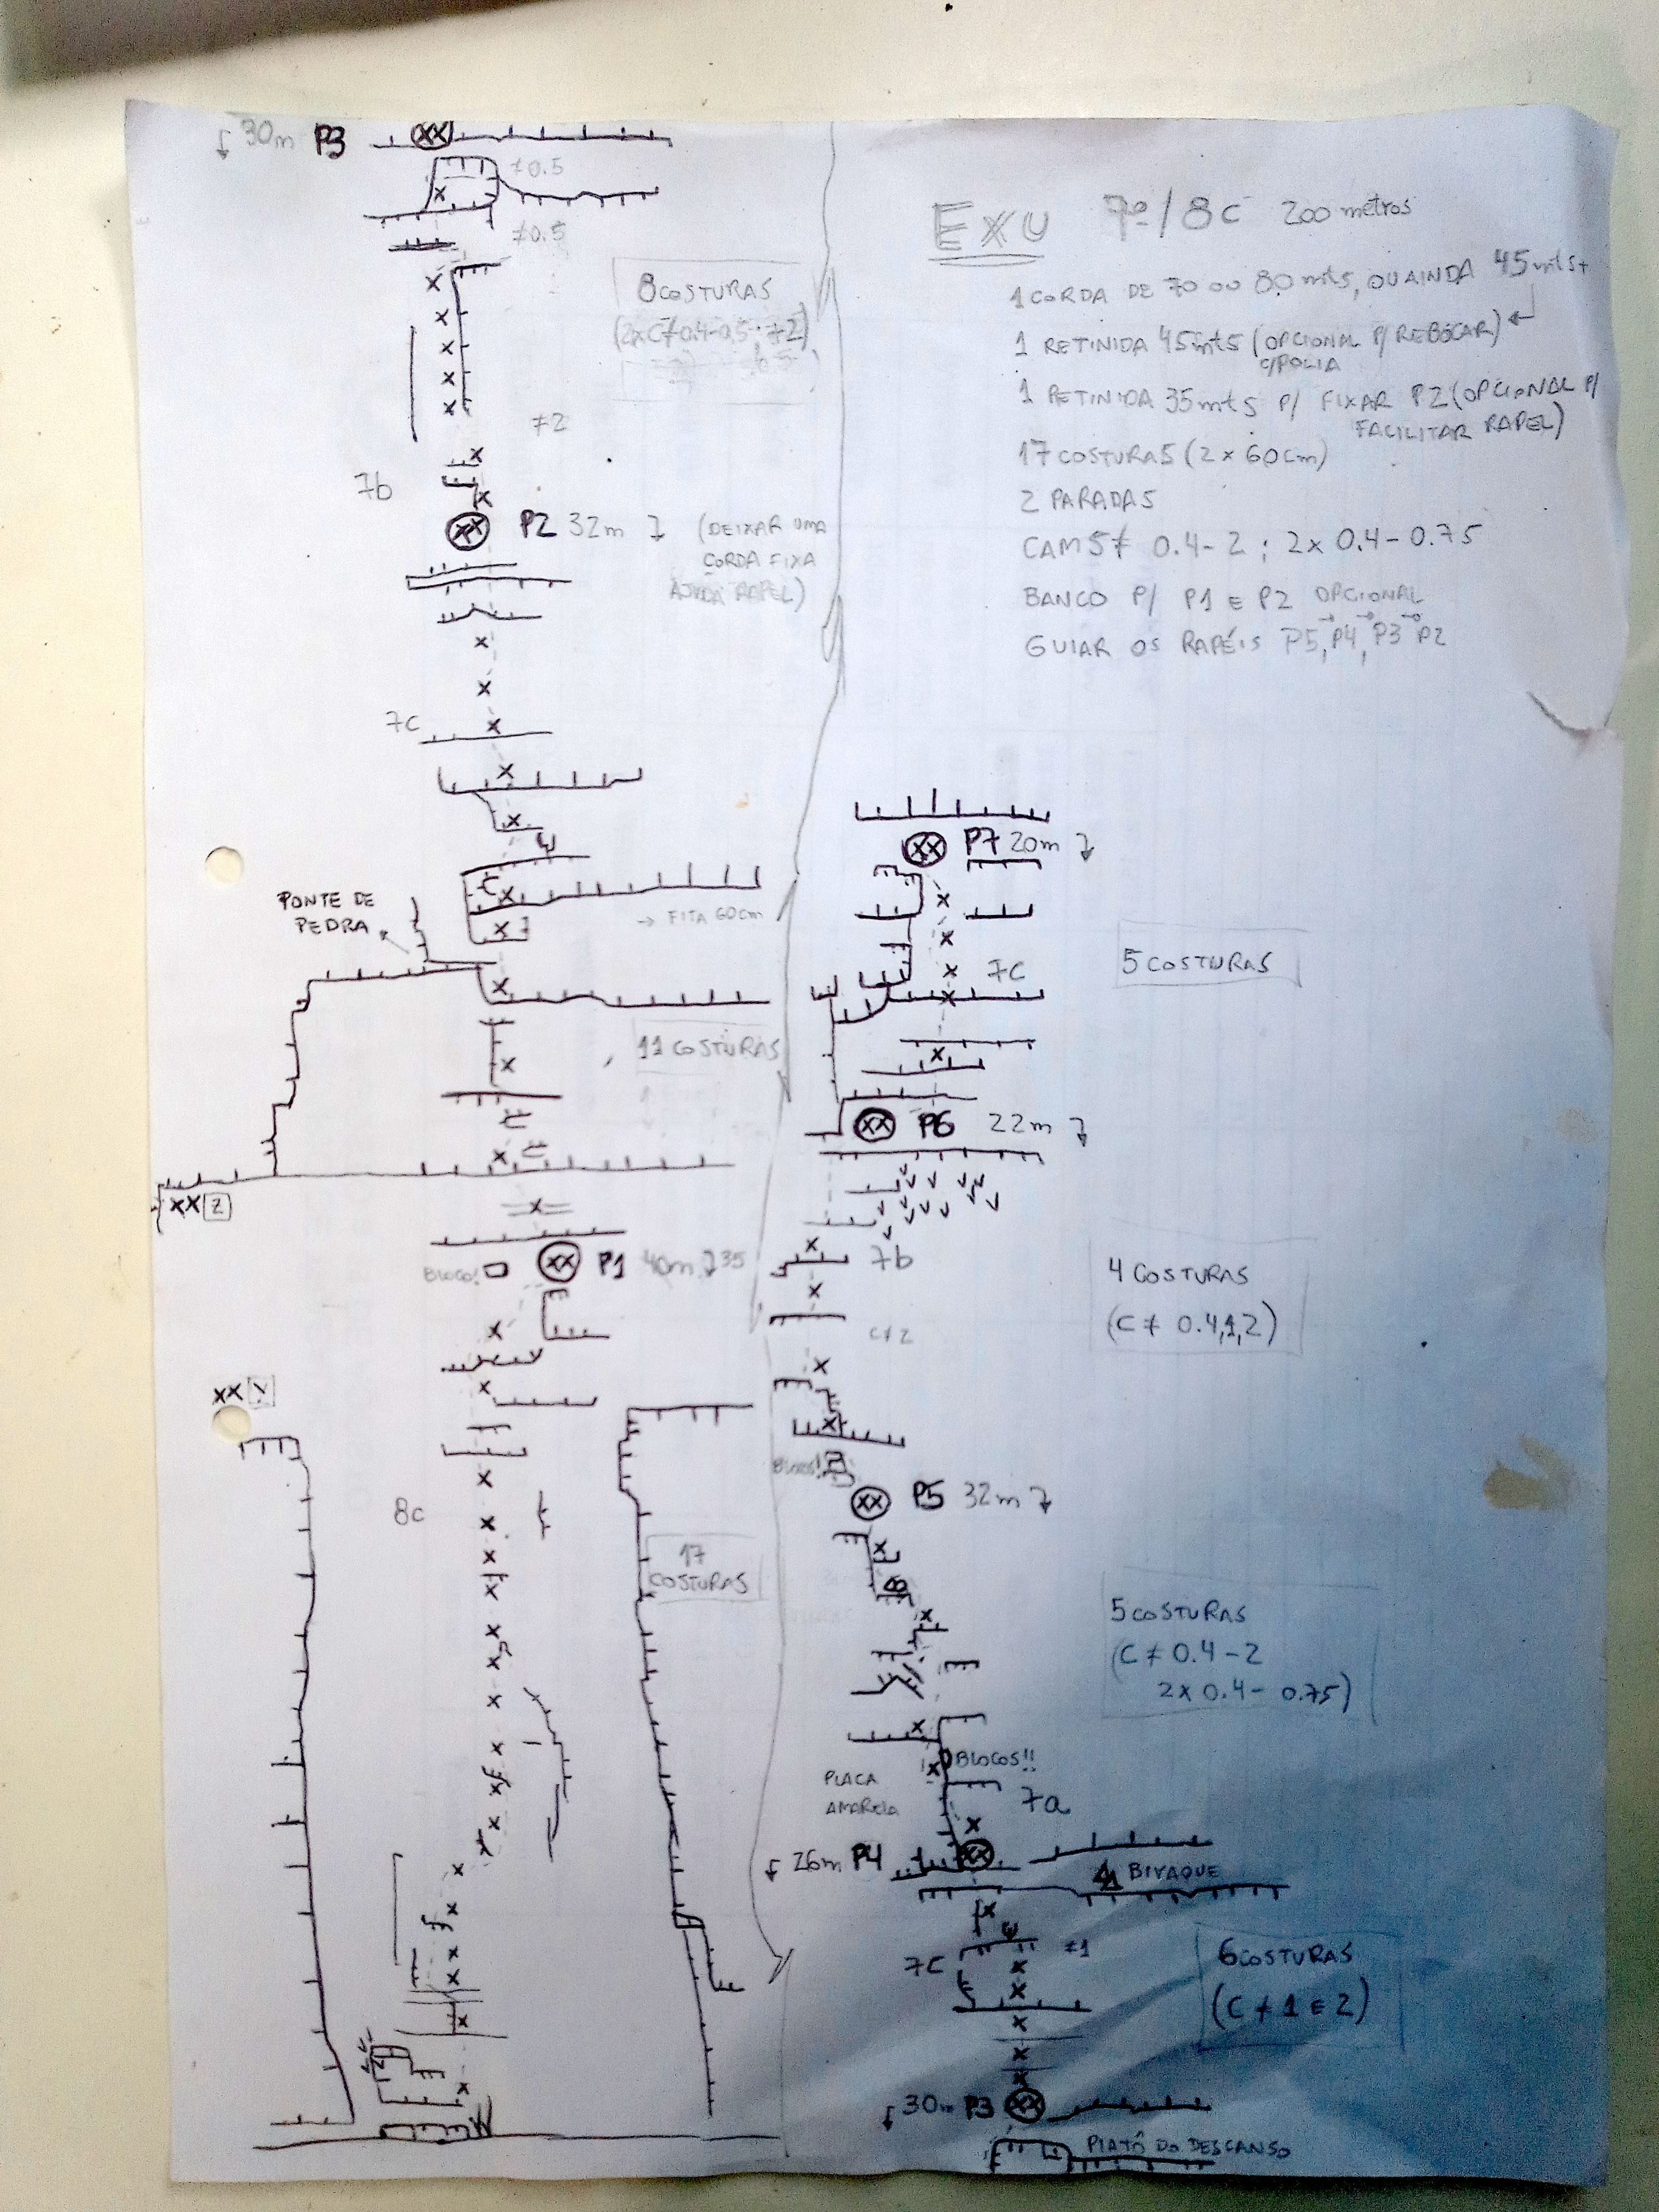 EXU 7º/8C 200 metros
1 CORDA DE 70 OU 80 mts, OU AINDA 45 mts+
1 RETINIDA 45mts (OPCIONAL P/ REBOCAR)
C/POLIA
1 RETINIDA 35mts P/ FIXAR P2 (OPCIONAL P/
FACILITAR RAPEL)
17 COSTURAS (2 x 60cm)
2 PARADAS
CAMS ≠ 0.4-2 ; 2x 0.4-0.75
BANCO P/ P1 E P2 OPCIONAL
GUIAR OS RAPÉIS P5, P4, P3 P2
30m P3
≠0.5
≠0.5
8 COSTURAS
≠2
7b
P2 32m
(DEIXAR UMA
CORDA FIXA
AJUDA RAPEL)
7c
PONTE DE
PEDRA
→ FITA 60cm
11 COSTURAS
XX 2
BLOCO!
P1 40m 35
XX
8c
17
COSTURAS
P7 20m
7C
5 COSTURAS
P6 22m
7b
4 COSTURAS
(C ≠ 0.4,1,2)
C≠2
BLOCO!
P5 32m
5 COSTURAS
(C ≠ 0.4-2
2x 0.4-0.75)
BLOCOS!!
PLACA
AMARELA
7a
26m P4
BIVAQUE
≠1
7C
6 COSTURAS
(C ≠ 1 E 2)
30m P3
PLATÔ DO DESCANSO